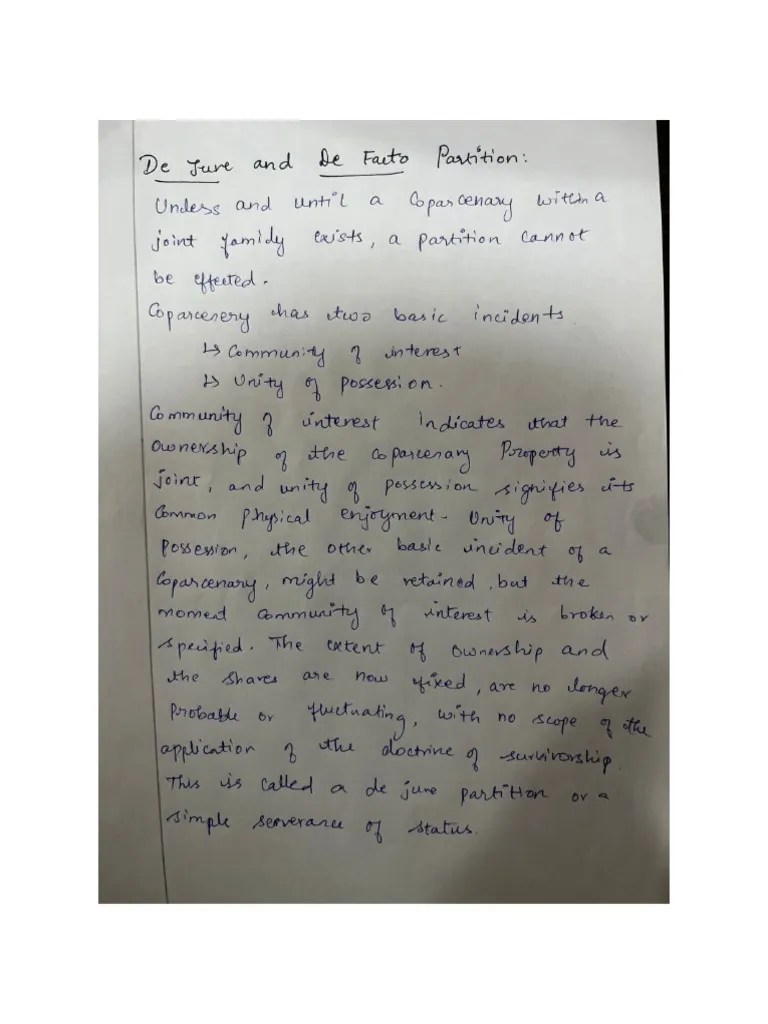 De Jure and De Facto Partition:
Unless and until a Coparcenary within a
joint family exists, a partition cannot
be effected.
Coparcenery has two basic incidents
↳ Community of interest
↳ Unity of possession.
Community of interest indicates that the
Ownership of the coparcenary Property is
joint, and unity of possession signifies its
Common physical enjoyment. Unity of
Possession, the other basic incident of a
Coparcenary, might be retained, but the
moment community of interest is broken or
specified. The extent of ownership and
the shares are now fixed, are no longer
Probable or fluctuating, with no scope of the
application of the doctrine of survivorship.
This is called a de jure partition or a
simple serverance of status.